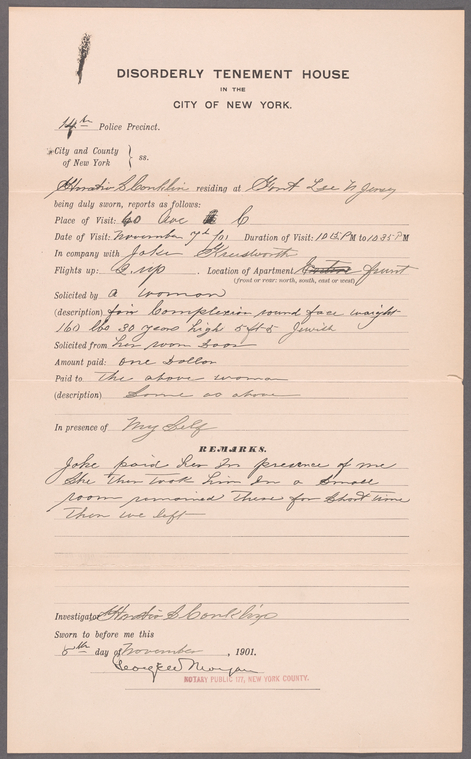 DISORDERLY TENEMENT HOUSE
IN THE
CITY OF NEW YORK.
14th Police Precinct.
City and County
of New York } ss.
Horatio S Conklin residing at Fort Lee N Jersey
being duly sworn, reports as follows:
Place of Visit: 60 Ave C
Date of Visit: November 7th /01 Duration of Visit: 10 15 P M to 10 35 P M
In company with Jake
Flights up: 2 up . Location of Apartment front
(front or rear: north, south, east or west)
Solicited by a woman
(description) fair Complexion round face waight
160 lbs 30 years high 5 ft 5 Jewish
Solicited from her room Door
Amount paid: One Dollar
Paid to the above woman
(description) Same as above
In presence of My Self
REMARKS.
Jake paid her In presence of me
She then took him In a Small
room remained there for Short time
Then we left
Investigator Horatio S Conklin
Sworn to before me this
8th day of November , 1901.
George W Morgan
NOTARY PUBLIC NEW YORK COUNTY.